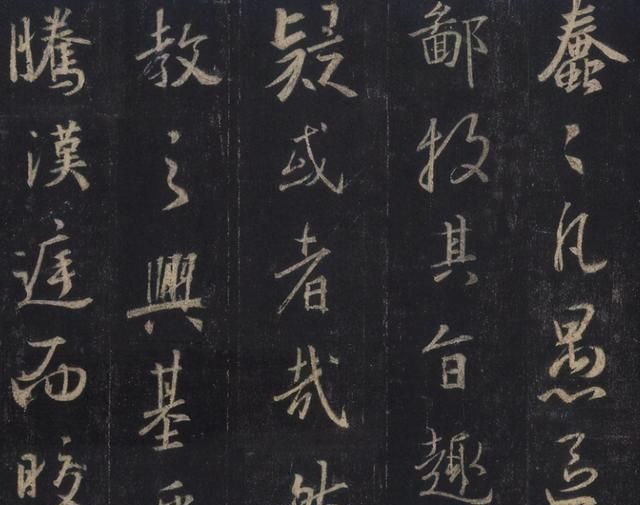 蠢〻凡愚區
鄙投其旨趣
疑或者哉然
教之興基乎
騰漢庭而皎